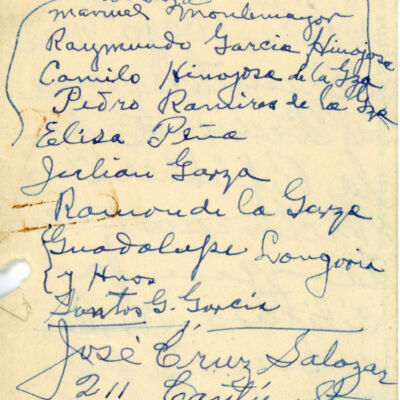 Manuel Montemayor
Raymundo Garcia Hinojosa
Camilo Hinojosa de la Gza
Pedro Ramires de la Gza
Elisa Peña
Julian Garza
Ramon de la Garza
Guadalupe Longoria
y Hnos
Santos G. Garcia
José Cruz Salazar
211 Cantú St